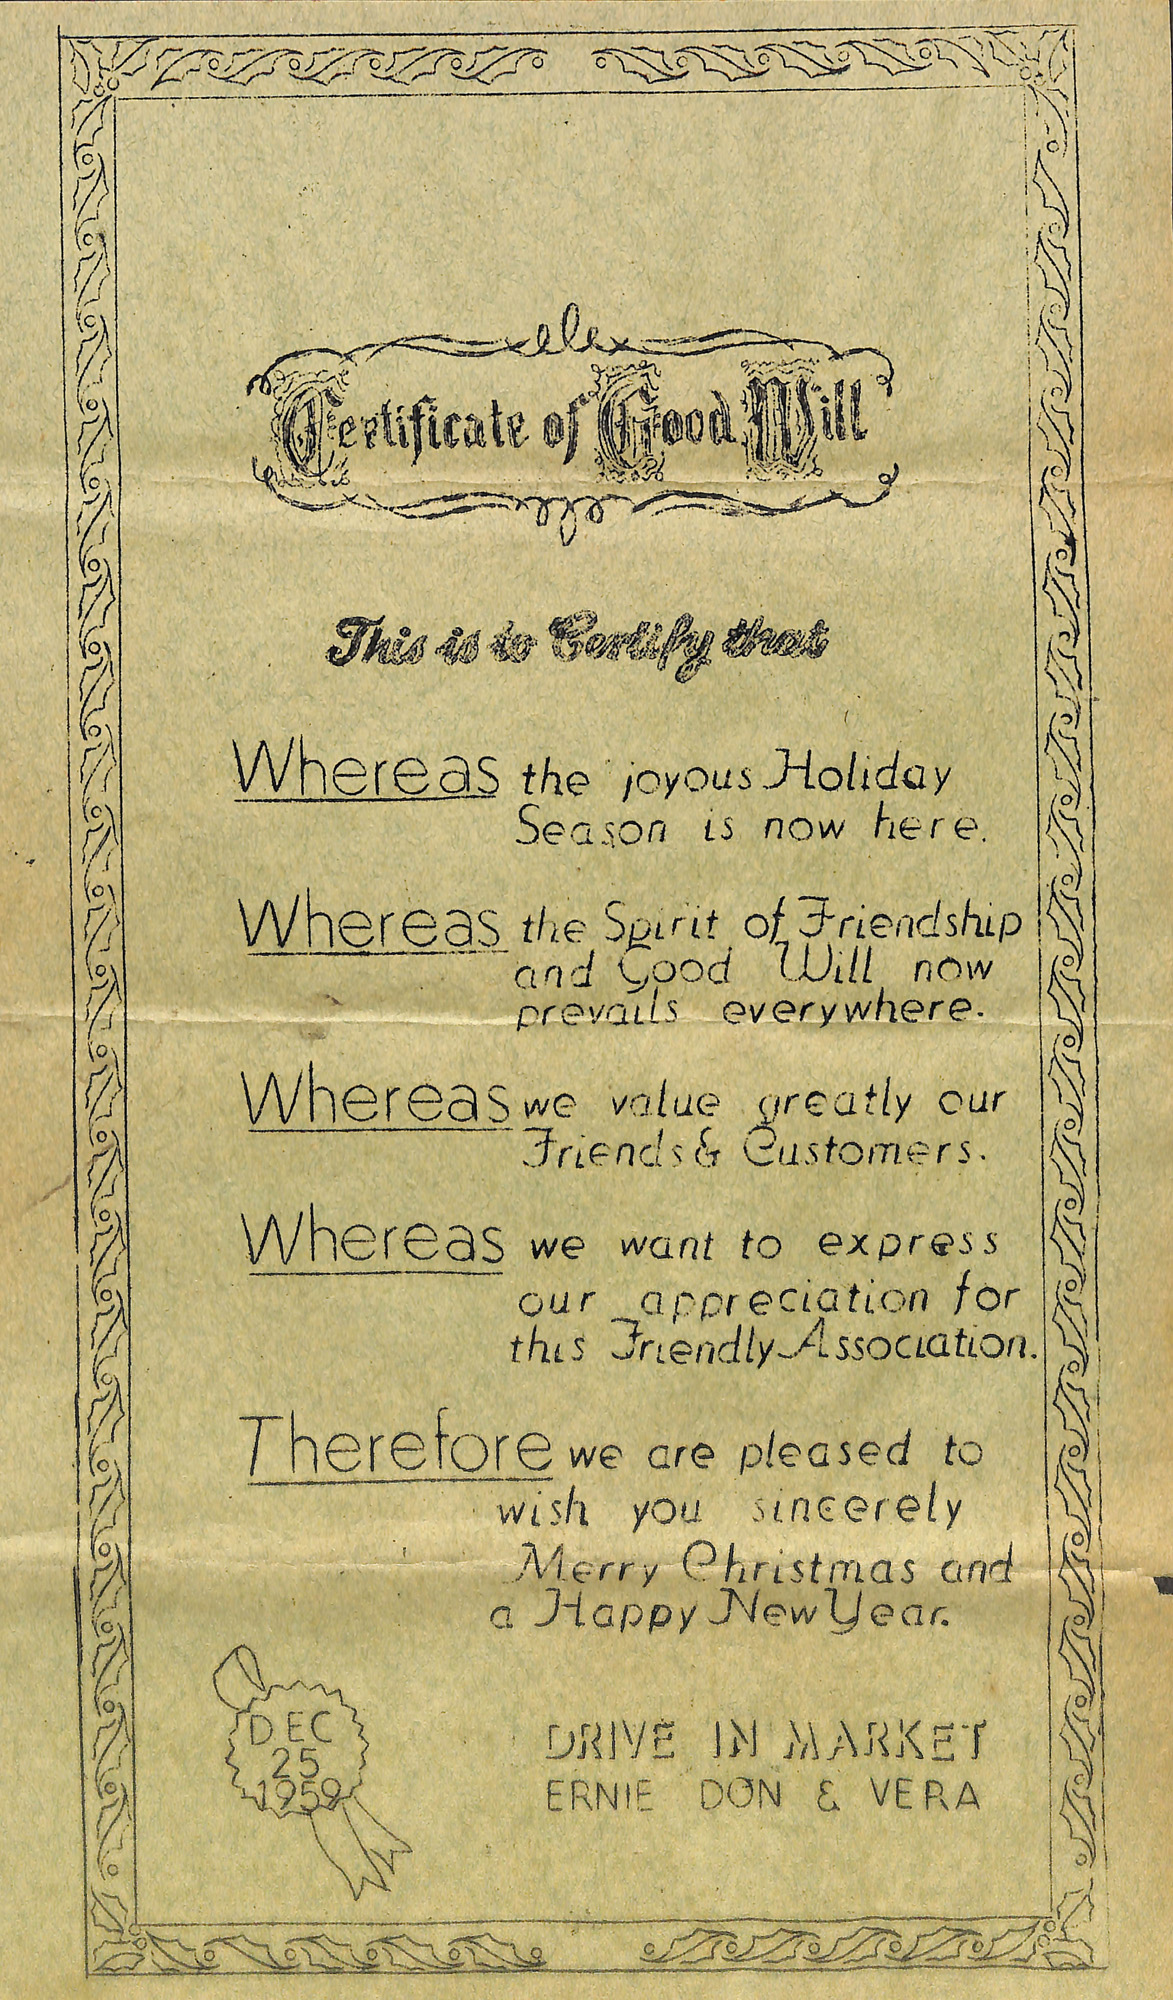 Certificate of Good Will
This is to Certify that
Whereas the joyous Holiday
Season is now here.
Whereas the Spirit of Friendship
and Good Will now
prevails everywhere.
Whereas we value greatly our
Friends & Customers.
Whereas we want to express
our appreciation for
this Friendly Association.
Therefore we are pleased to
wish you sincerely
Merry Christmas and
a Happy New Year.
DEC
25
1959
DRIVE IN MARKET
ERNIE DON & VERA